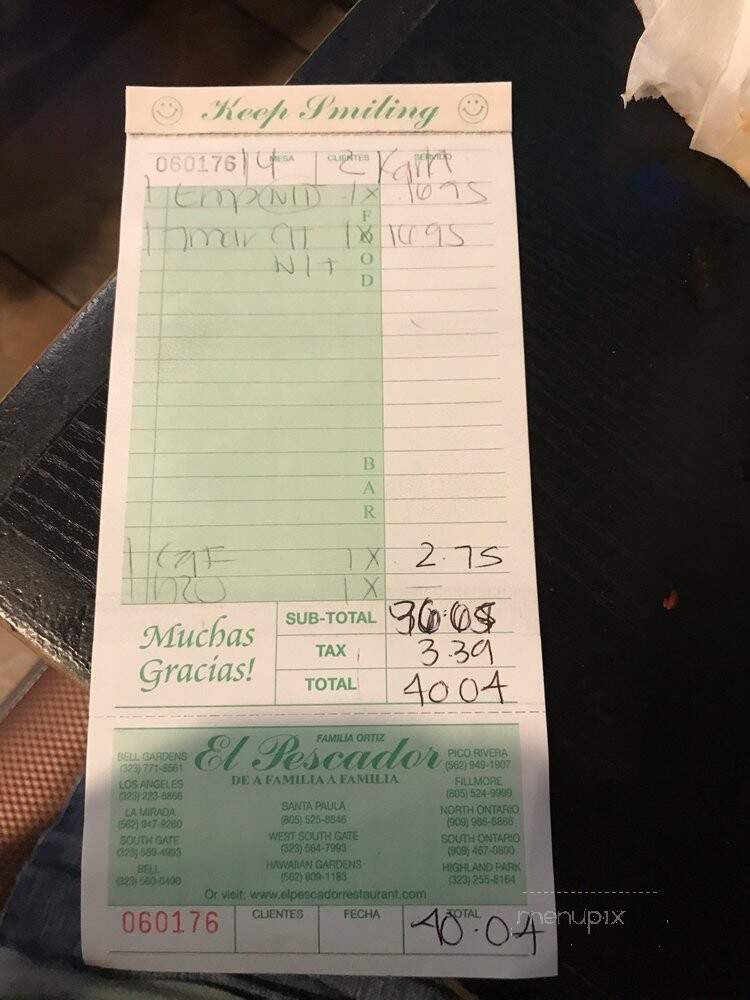 Keep Smiling
060176 14 MESA 2 CLIENTES Karla SERVIDO
1 EmpNID 1X 16 95
1 1X 16 95
N/+
FOOD
BAR
1 1X 2.75
1 H2O 1X —
SUB-TOTAL 36.65
Muchas
Gracias!
TAX 3.39
TOTAL 40 04
FAMILIA ORTIZ
El Pescador
DE A FAMILIA A FAMILIA
BELL GARDENS
(323) 771-8561
LOS ANGELES
(323) 223-8866
LA MIRADA
(562) 947-9260
SOUTH GATE
(323) 569-4993
BELL
(323) 560-0498
SANTA PAULA
(805) 525-8846
WEST SOUTH GATE
(323) 564-7993
HAWAIIAN GARDENS
(562) 809-1183
PICO RIVERA
(562) 949-1907
FILLMORE
(805) 524-9999
NORTH ONTARIO
(909) 986-8886
SOUTH ONTARIO
(909) 467-0800
HIGHLAND PARK
(323) 255-8164
Or visit: www.elpescadorrestaurant.com
060176 CLIENTES FECHA TOTAL 40.04
menupix